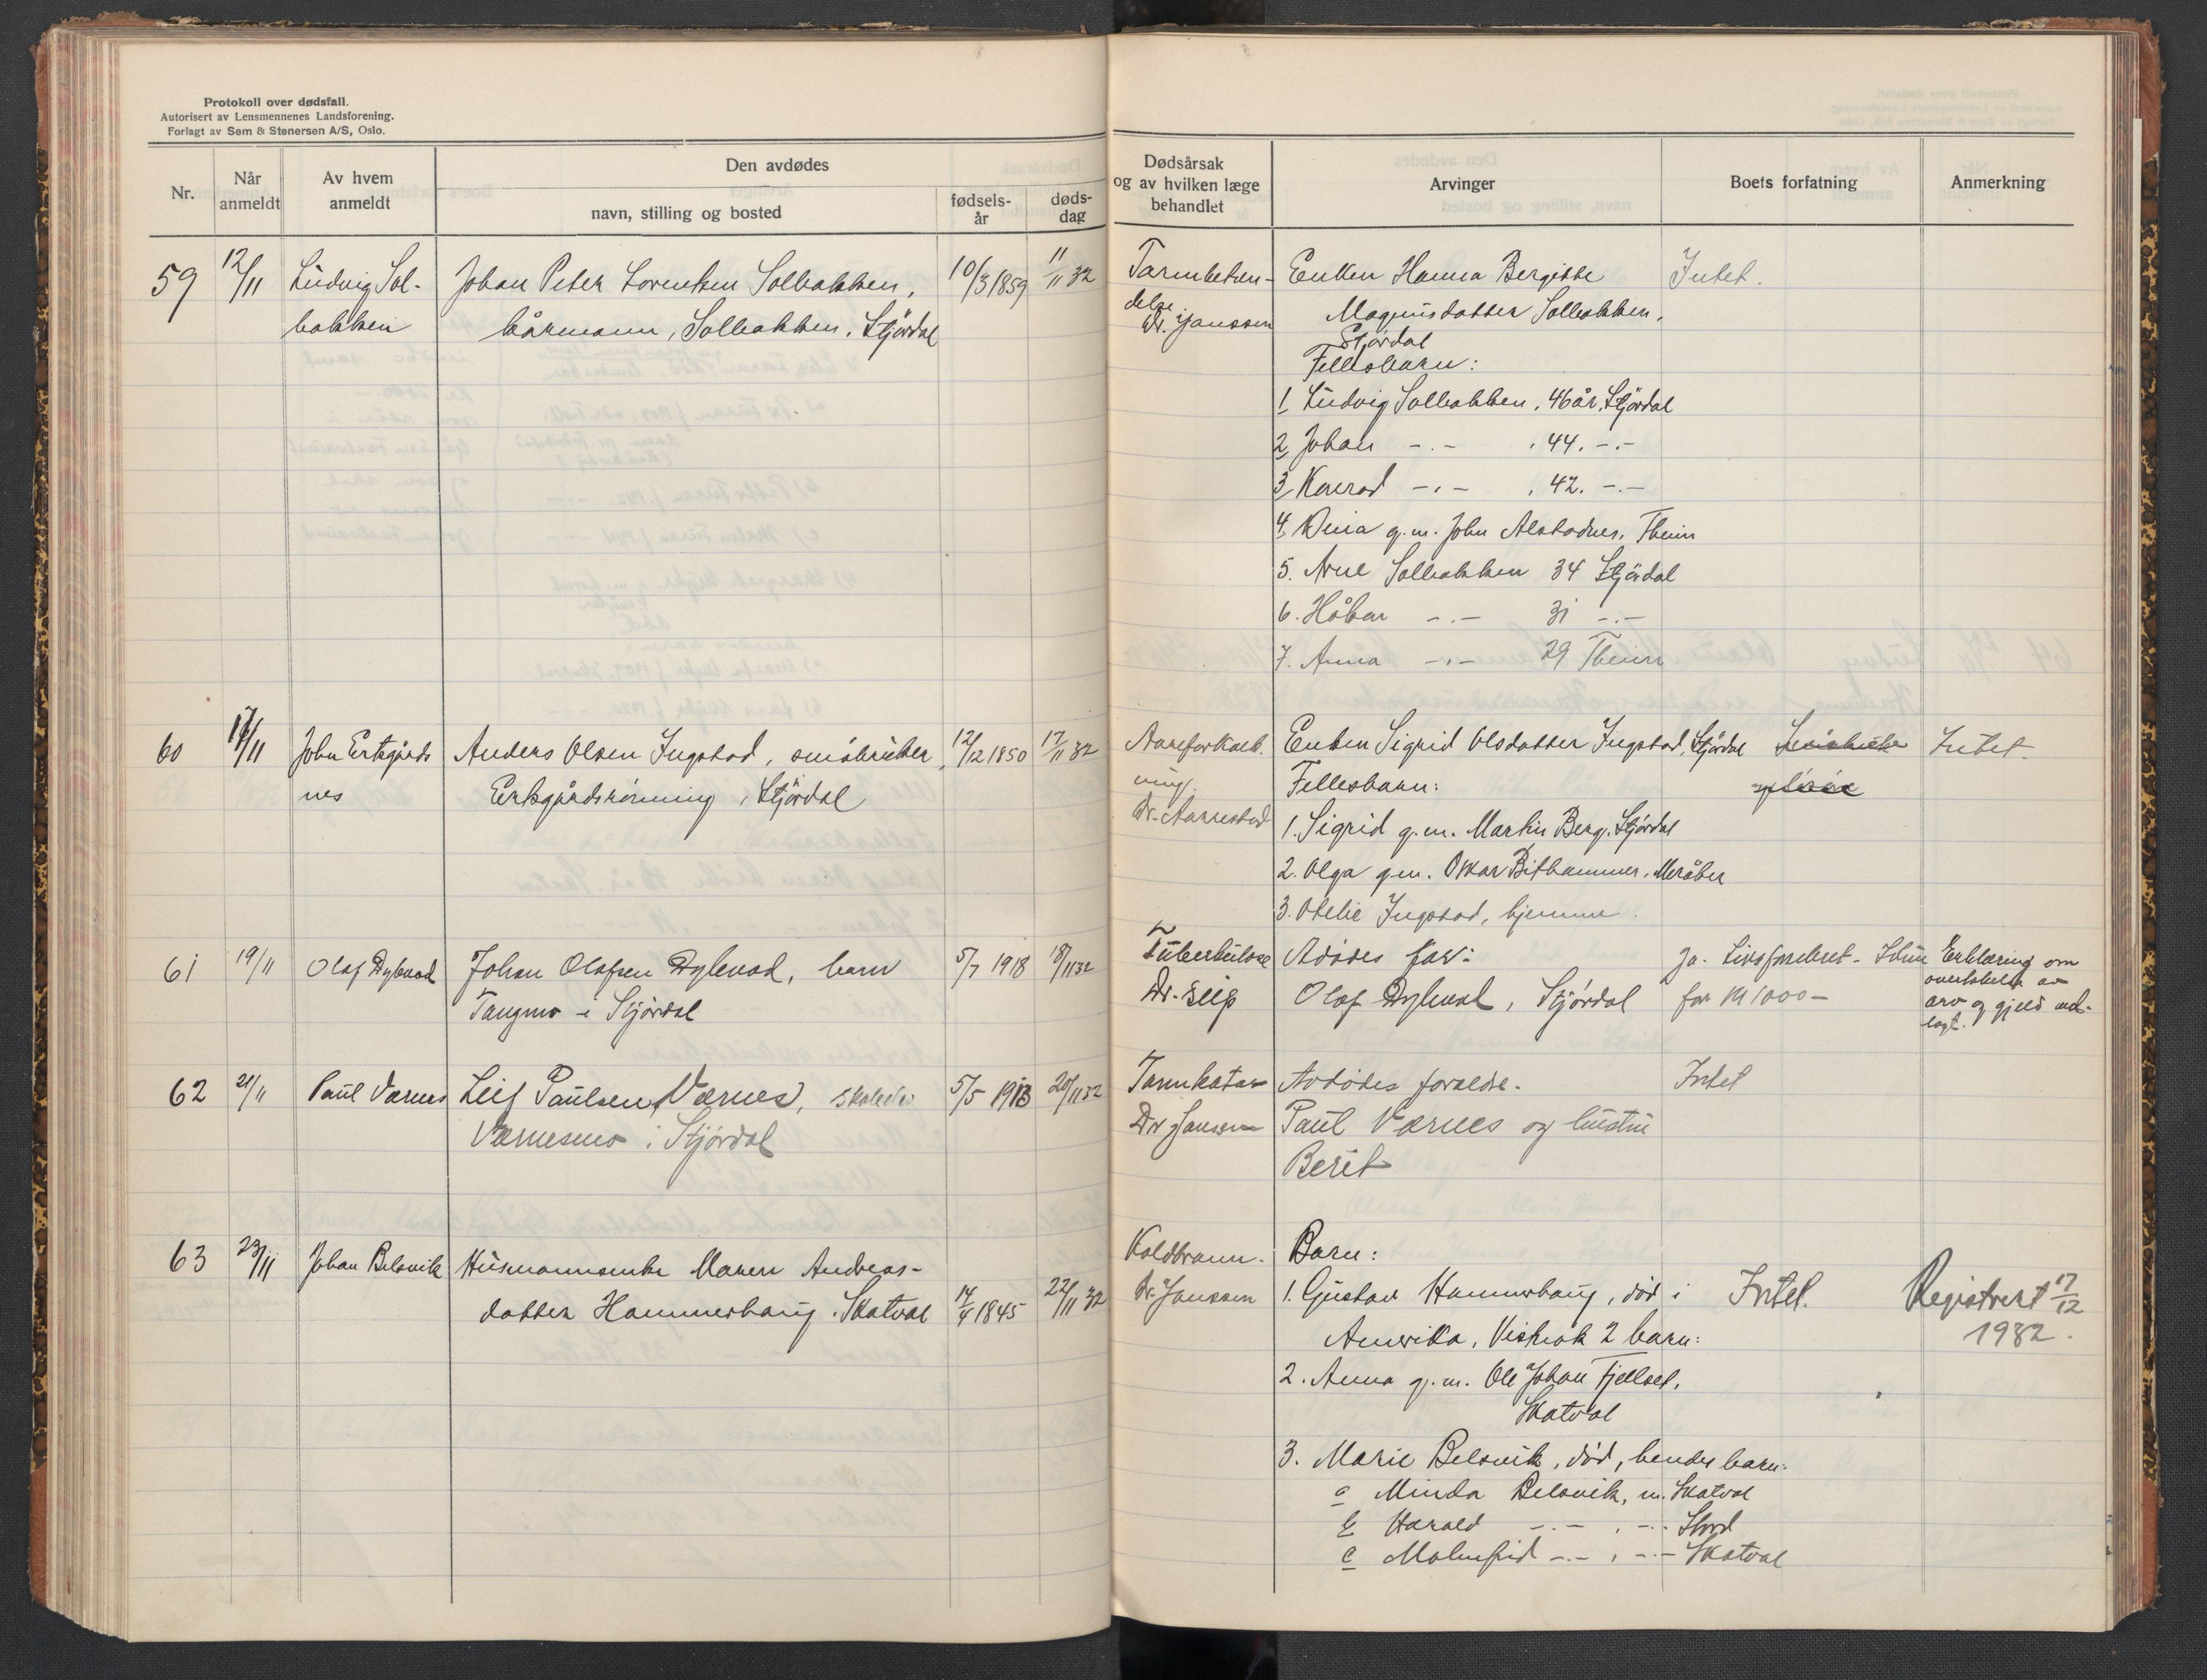 Protokoll over dødsfall.
Autorisert av Lensmennenes Landsforening.
Forlagt av Sem & Stenersen A/S, Oslo.
Nr.
Når anmeldt
Av hvem anmeldt
Den avdødes
navn, stilling og bosted
fødsels-år
døds-dag
Dødsårsak og av hvilken læge behandlet
Arvinger
Boets forfatning
Anmerkning
59 12/11 Ludvig Sol- Johan Peter Lorentsen Solbakken, 10/3 1859 11/11 32
bakken kårmann, Solbakken, Stjørdal
Tarmbeten-
delse
Dr. Janssen
Enken Hanna Bergitte Intet.
Magnusdatter Solbakken,
Stjørdal
Fellesbarn:
1 Ludvig Solbakken, 46 år, Stjørdal
2 Johan -.- , 44. -.-
3 Konrad -.- , 42. -.-
4. g.m. John Alstadnes, Thein
5. Arne Solbakken 34 Stjørdal
6. Håkon -.- 31 -.-
7. Anna -.- 29 Thein
60 17/11 John Ertsgårds Anders Olsen Ingstad, småbruker, 12/12 1850 17/11 32
nes Ertsgårdsrønning, Stjørdal
Aareforkalk-
ning.
Dr. Aarrestad
Enken Sigrid Olsdatter Ingstad, Stjørdal Intet.
Fellesbarn:
1. Sigrid g.m. Martin Berg, Stjørdal
2. Olga g.m. Oskar Bithammer, Meråker
3. Otelie Ingstad, hjemme.
61 19/11 Olaf Dybvad Johan Olafsen Dybvad, barn 5/7 1918 18/11 32
Tangmo i Stjørdal
Tuberkulose
Dr. Seip
Avdødes far:
Olaf Dybvad, Stjørdal
Ja. Livsforsikret. Idun
for kr 1000 -
Erklæring om
overtakelse av
arv og gjeld ved-
lagt.
62 21/11 Paul Værnes Leif Paulsen Værnes, skoleelev 5/5 1918 20/11 32
Værnesmo i Stjørdal
Tarmkatar
Dr Janssen
Avdødes foreldre. Intet
Paul Værnes og hustru
Berit
63 23/11 Johan Belsvik Husmannsenke Maren Andreas-
datter Hammerhaug, Skatval 14/4 1845 22/11 32
Koldbrann.
Dr. Janssen
Barn:
1. Gustav Hammerhaug, død i Intet. Registrert 17/12
Amerika, Visknok 2 barn: 1932.
2. Anna g.m. Ole Johan Fjellset,
Skatval
3. Marie Belsvik, død, hendes barn:
a Minda Belsvik, m. Skatval
b Harald -.- , -.-
c Malmfrid -.- , -.- Skatval